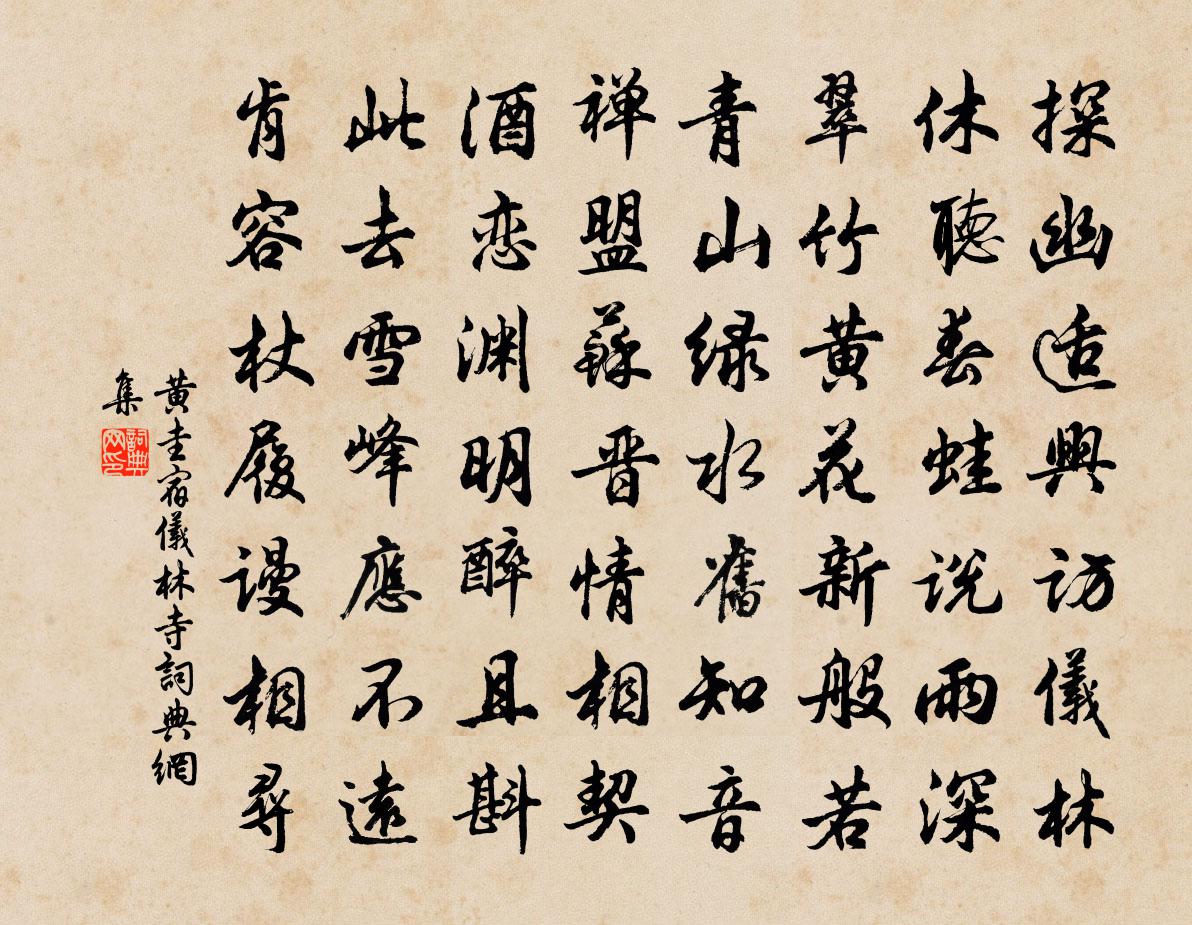 探幽适興访儀林
休聽春蛙说雨深
翠竹黄花新般若
青山绿水舊知音
禅盟蘇晋情相契
酒恋渊明醉且斟
此去雪峰應不遠
肯容杖履谩相尋
黄圭宿儀林寺詞典網
集
詞典
网印